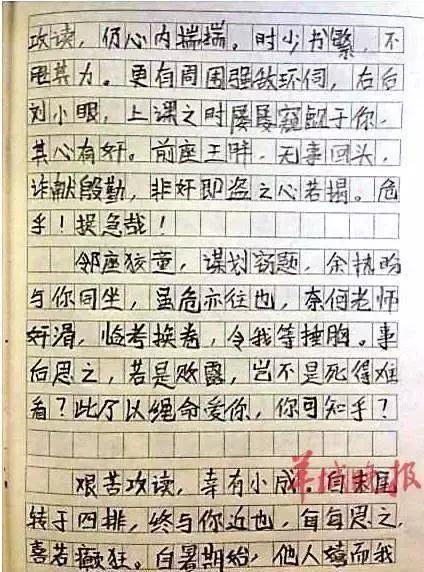 攻读，仍心内揣揣。时少书繁，不
胜其力。更有周围强敌环伺，右后
刘小眼，上课之时屡屡窥觎于你，
其心有奸。前座王胖，无事回头，
诈献殷勤，非奸即盗之心若揭。危
乎！提急哉！
邻座狡童，谋划窃题，余恐昀
与你同坐，虽危亦往也，奈何老师
奸滑，临考换卷，令我等捶胸。事
后思之，若是败露，岂不是死得难
看？此乃以绳命爱你，你可知乎？
羊城晚报
艰苦攻读，幸有小成。自末尾
转于四排，终与你近也，每每思之，
喜若癫狂。自暑期始，他人嬉而我